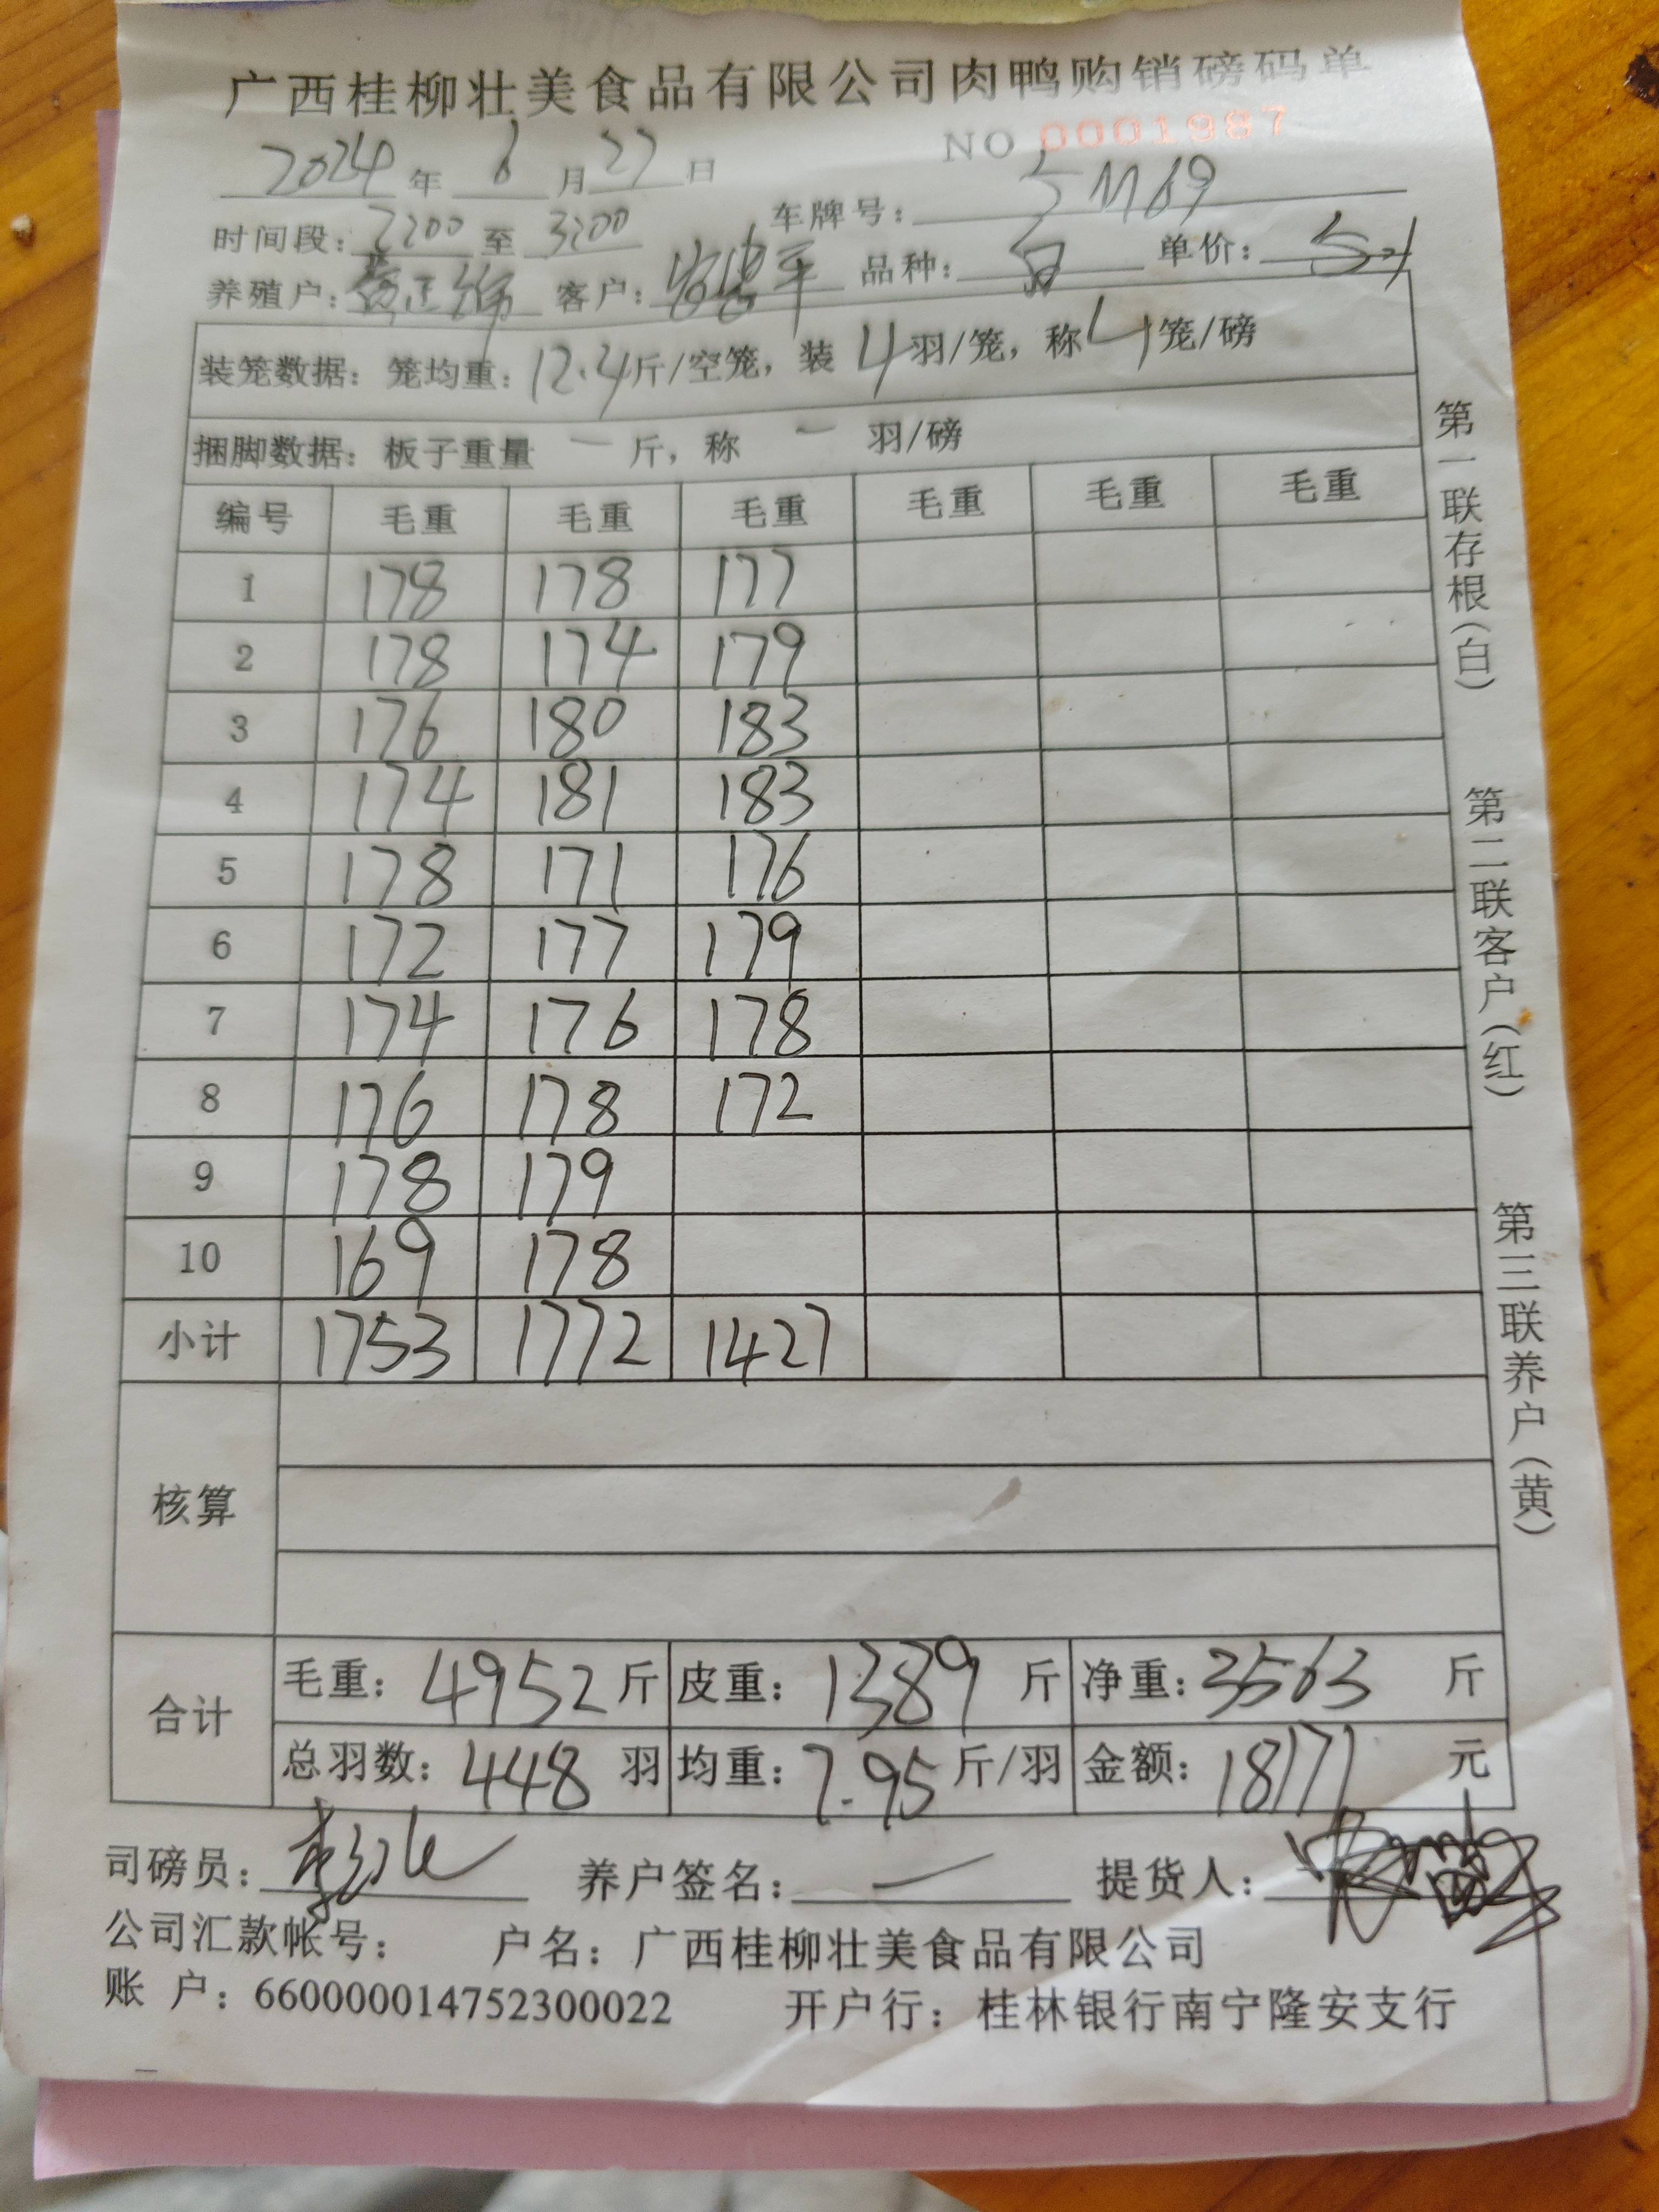 广西桂柳壮美食品有限公司肉鸭购销磅码单
NO 0001987
2024 年 6 月 27 日
时间段: 2200 至 3200 车牌号: 51169
养殖户: 客户: 品种: 白 单价: 5.1
装笼数据: 笼均重: 12.4 斤/空笼, 装 4 羽/笼, 称 4 笼/磅
捆脚数据: 板子重量 一 斤, 称 一 羽/磅
编号 毛重 毛重 毛重 毛重 毛重 毛重
1 178 178 177
2 178 174 179
3 176 180 183
4 174 181 183
5 178 171 176
6 172 177 179
7 174 176 178
8 176 178 172
9 178 179
10 169 178
小计 1753 1772 1427
核算
合计 毛重: 4952 斤 皮重: 1389 斤 净重: 3563 斤
总羽数: 448 羽 均重: 7.95 斤/羽 金额: 18171 元
司磅员: 养户签名: 一 提货人:
公司汇款帐号: 户名: 广西桂柳壮美食品有限公司
账 户: 660000014752300022 开户行: 桂林银行南宁隆安支行
第一联存根(白)
第二联客户(红)
第三联养户(黄)